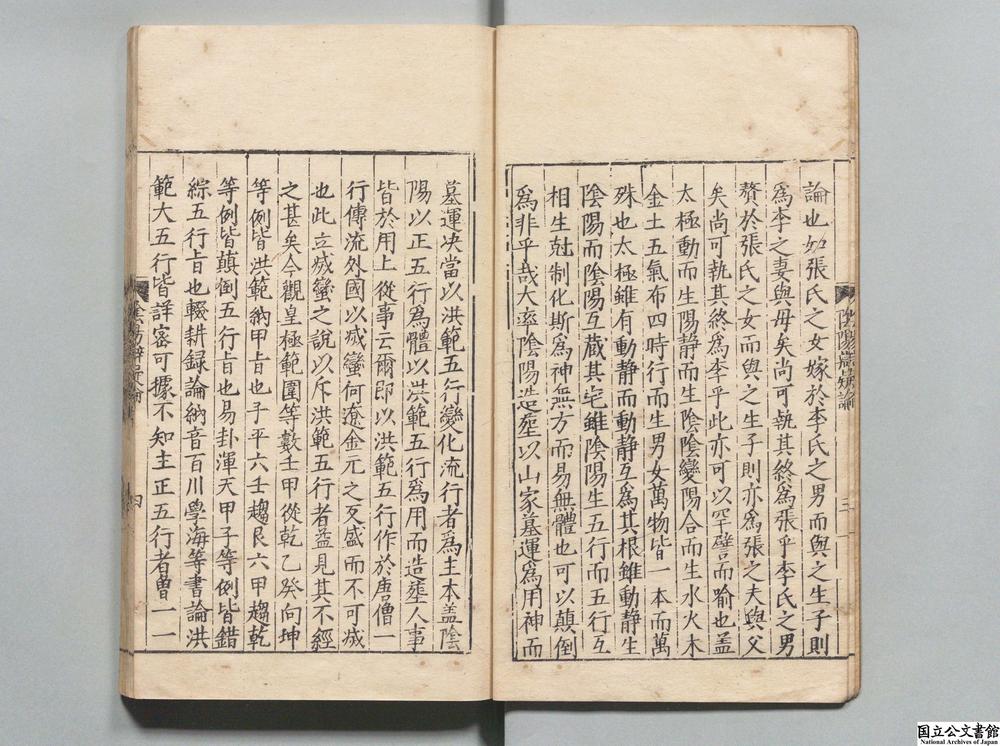 論也如張氏之女嫁於李氏之男而與之生子則
爲李之妻與母矣尚可執其終爲張乎李氏之男
贅於張氏之女而與之生子則亦爲張之夫與父
矣尚可執其終爲李乎此亦可以罕譬而喻也盖
太極動而生陽静而生陰陰變陽合而生水火木
金土五氣布四時行而生男女萬物皆一本而萬
殊也太極雖有動静而動静互爲其根雖動静生
陰陽而陰陽互蔵其宅雖陰陽生五行而五行互
相生尅制化斯爲神無方而易無體也可以顛倒
爲非乎哉大率陰陽造塟以山家墓運爲用神而
三
墓運决當以洪範五行變化流行者爲主本盖陰
陽以正五行爲體以洪範五行爲用而造塟人事
皆於用上從事云爾即以洪範五行作於唐僧一
行傳流外國以滅蠻何遼金元之叐盛而不可滅
也此立滅蠻之說以斥洪範五行者益見其不經
之甚矣今觀皇極範圍等數壬甲從乾乙癸向坤
等例皆洪範納甲㫖也子平六壬趨艮六甲趨乾
等例皆顛倒五行㫖也易卦渾天甲子等例皆錯
綜五行㫖也輟耕録論納音百川學海等書論洪
範大五行皆詳宻可據不知主正五行者曾一一
四
国立公文書館
National Archives of Japan